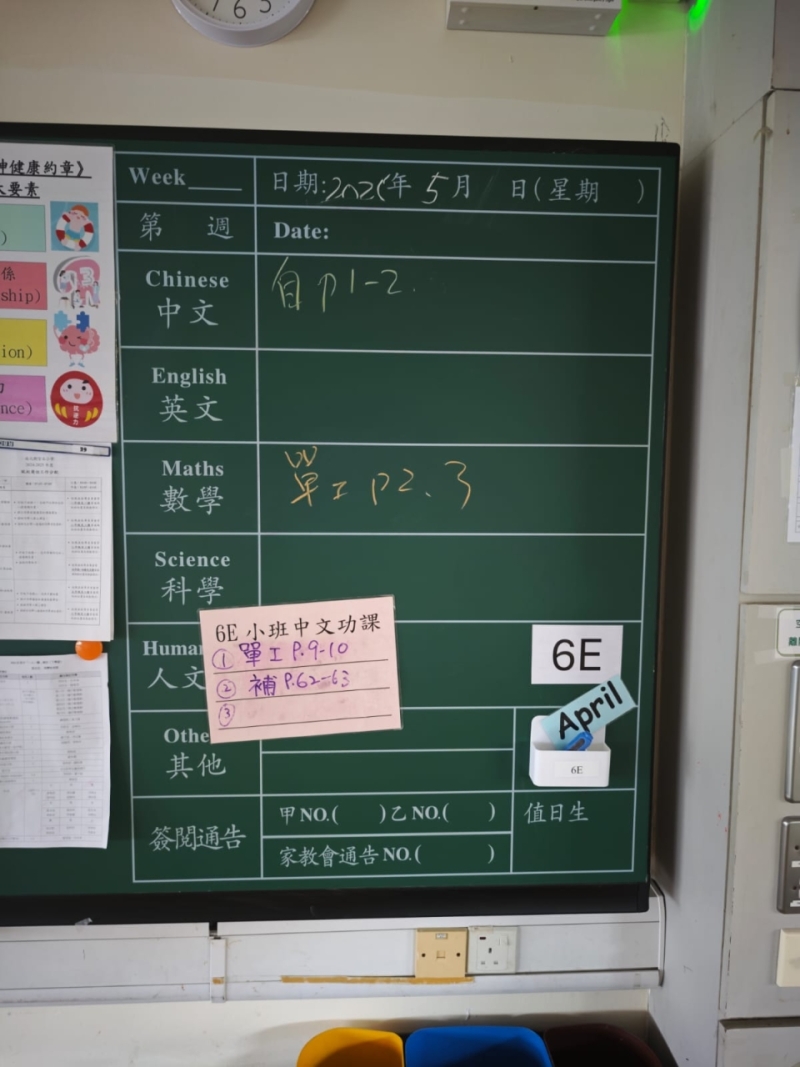 6 5
神健康約章》
大要素
係
ship)
ion)
力
ence)
Week____ 日期:202 年 5月 日(星期 )
第 週 Date:
Chinese
中文
自 P1-2.
English
英文
Maths
數學
單工 P2、3
Science
科學
Human
人文
6E 小班中文功課
① 單工 P.9-10
② 補 P.62-63
③
6E
April
6E
Othe
其他
簽閱通告
甲NO.( )乙NO.( )
家教會通告NO.( )
值日生